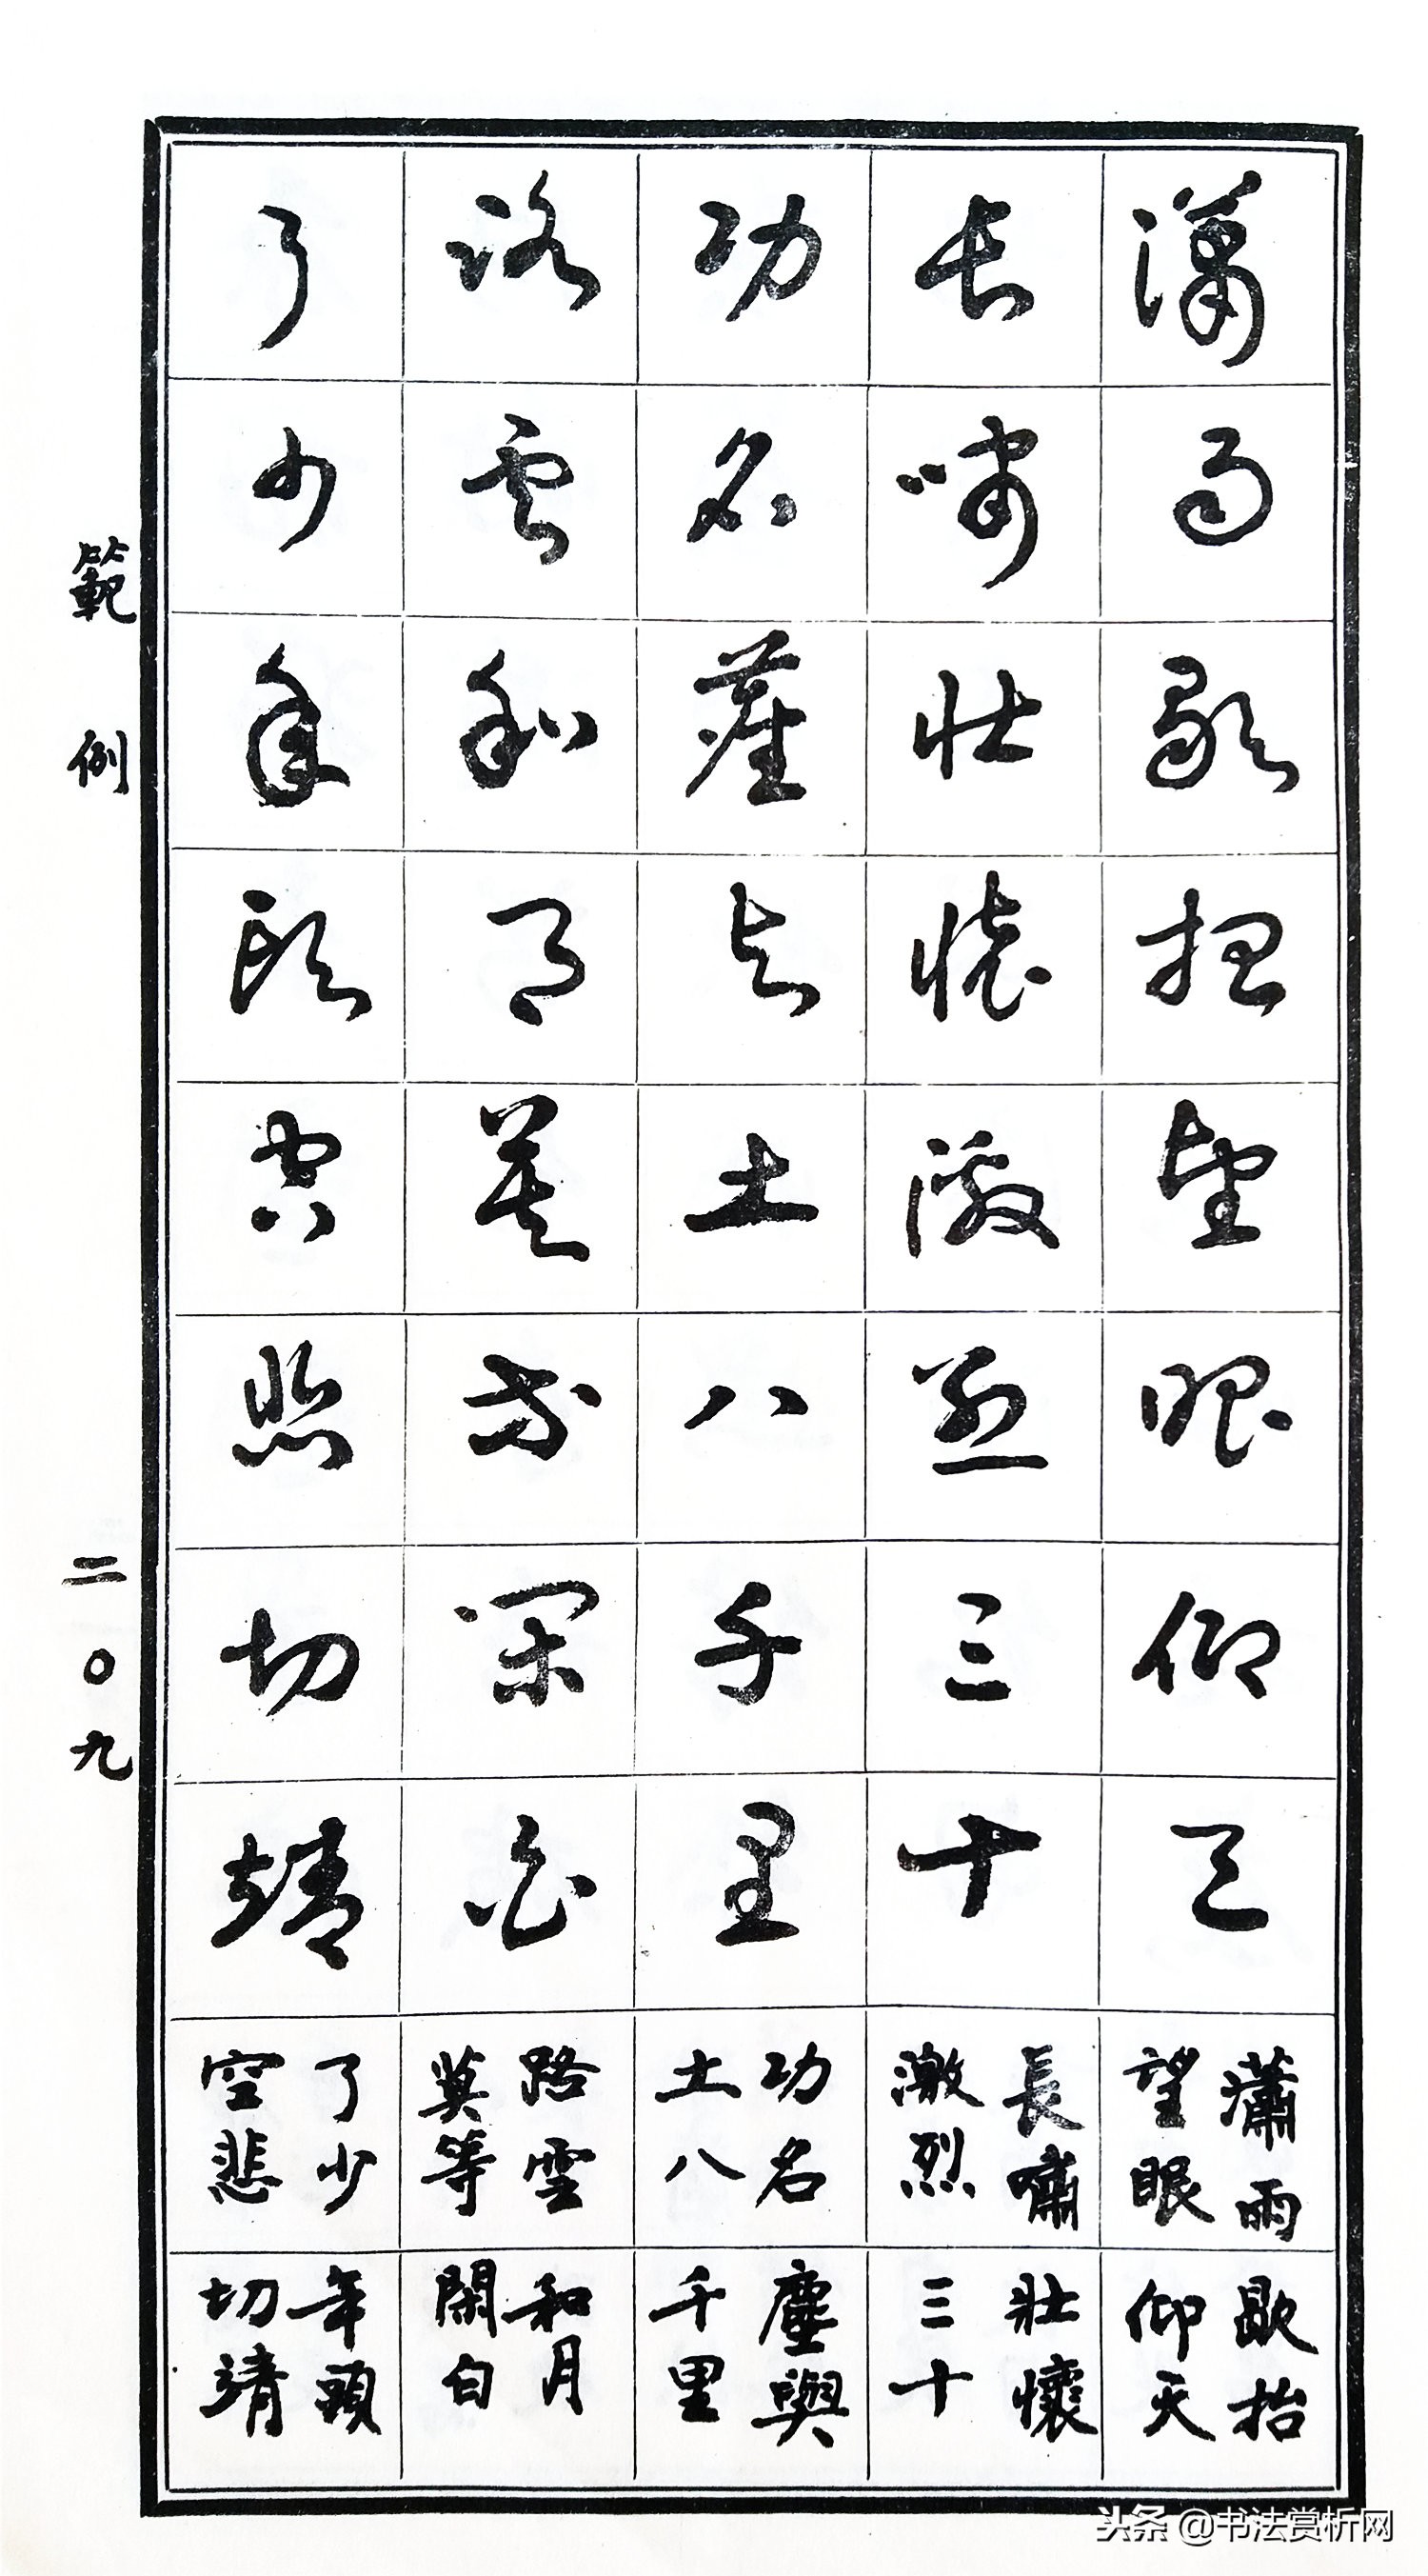 瀟雨歇抬望眼仰天
長嘯壯懷激烈三十
功名塵與土八千里
路雲和月莫等閑白
了少年頭空悲切靖
瀟雨
望眼
歇抬
仰天
長嘯
激烈
壯懷
三十
功名
土八
塵與
千里
路雲
莫等
和月
閑白
了少
空悲
年頭
切靖
範例
二〇九
头条 @书法赏析网